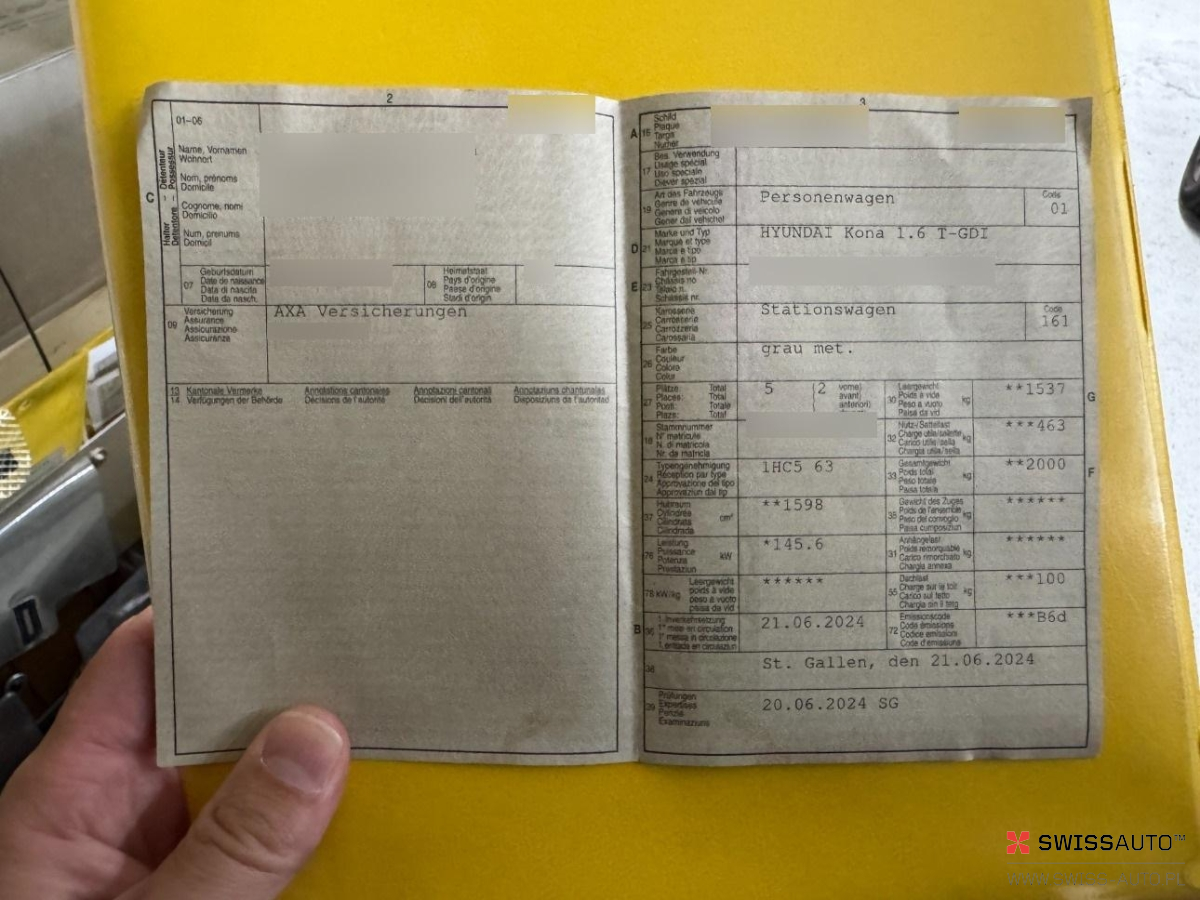 2
01-06
C
Halter – Détenteur
Detentore – Possessur
Name, Vornamen
Wohnort
Nom, prénoms
Domicile
Cognome, nomi
Domicilio
Num, prenums
Domicil
07
Geburtsdatum
Date de naissance
Data di nascita
Data da nasch.
08
Heimatstaat
Pays d'origine
Paese d'origine
Stadi d'origin
09
Versicherung
Assurance
Assicurazione
Assicuranza
AXA Versicherungen
13 Kantonale Vermerke Annotations cantonales Annotazioni cantonali Annotaziuns chantunalas
14 Verfügungen der Behörde Décisions de l'autorité Decisioni dell'autorità Disposiziuns da l'autoritad
3
A 15
Schild
Plaque
Targa
Numer
17
Bes. Verwendung
Usage spécial
Uso speciale
Diever spezial
19
Art des Fahrzeugs
Genre de véhicule
Genere di veicolo
Gener dal vehichel
Personenwagen
Code
01
D 21
Marke und Typ
Marque et type
Marca e tipo
Marca e tip
HYUNDAI Kona 1.6 T-GDI
E 23
Fahrgestell-Nr.
Châssis no
Telaio n.
Schassis nr.
25
Karosserie
Carrosserie
Carrozzeria
Carossaria
Stationswagen
Code
161
26
Farbe
Couleur
Colore
Colur
grau met.
27
Plätze: Total
Places: Total
Posti: Totale
Plazs: Total
5 (2
vorne)
avant)
anteriori)
30
Leergewicht
Poids à vide
Peso a vuoto
Paisa da vid
kg
**1537
G
18
Stammnummer
N° matricule
N. di matricola
Nr. da matricla
32
Nutz-/Sattellast
Charge utile/sellette
Carico utile/sella
Chargia utila/sella
kg
***463
24
Typengenehmigung
Réception par type
Approvazione del tipo
Approvaziun dal tip
1HC5 63
33
Gesamtgewicht
Poids total
Peso totale
Paisa totala
kg
**2000
F
37
Hubraum
Cylindrée
Cilindrata
Cilindrada
cm³
**1598
35
Gewicht des Zuges
Poids de l'ensemble
Peso del convoglio
Paisa cumposiziun
kg
******
76
Leistung
Puissance
Potenza
Prestaziun
kW
*145.6
31
Anhängelast
Poids remorquable
Carico rimorchiato
Chargia annexa
kg
******
78 kW/kg
Leergewicht
poids à vide
peso a vuoto
paisa da vid
******
55
Dachlast
Charge sur le toit
Carico sul tetto
Chargia sin il tetg
kg
***100
B 36
1. Inverkehrsetzung
1re mise en circulation
1a messa in circolazione
1. entrada en circulaziun
21.06.2024
72
Emissionscode
Code émissions
Codice emissioni
Code d'emissiuns
***B6d
38
St. Gallen, den 21.06.2024
39
Prüfungen
Expertises
Perizie
Examinaziuns
20.06.2024 SG
SWISSAUTO™